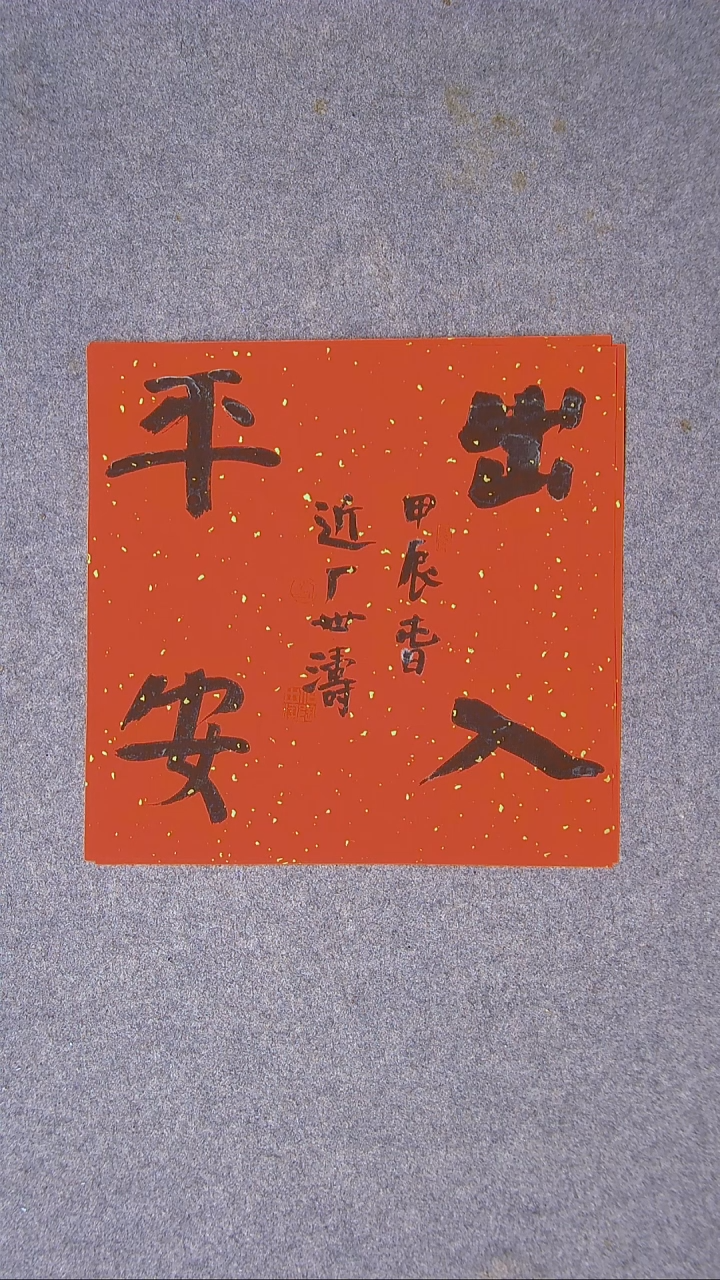 出入
平安
甲辰春
近厂世濤